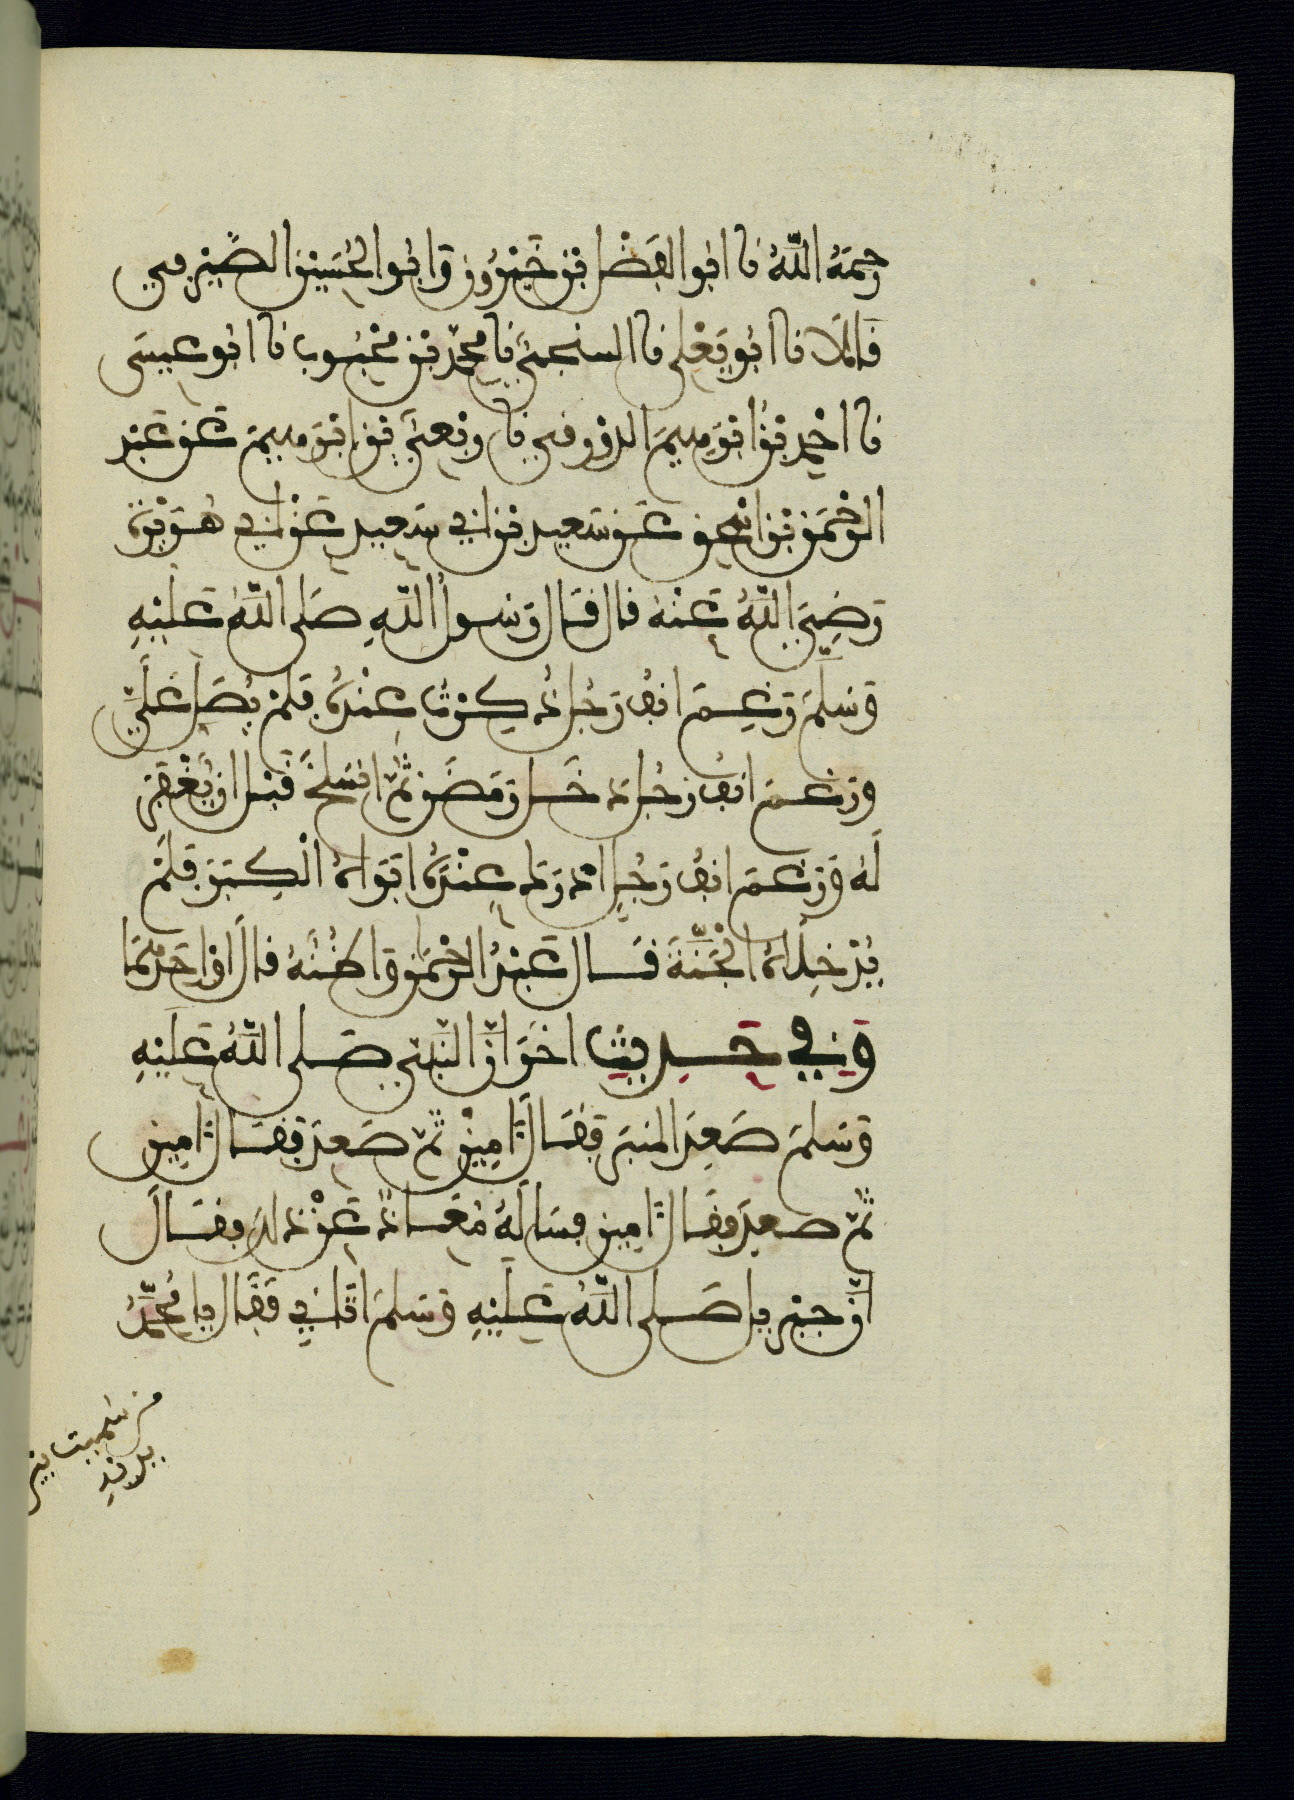 رحمه الله نا ابوا الفضل ابن خيرون وابوا الحسين الصيرفي
فالا نا ابو يعلى نا السنجي نا محمد بن محبوب نا ابو عيسى
نا احمد بن ابرهيم الدورقي نا ربعي بن ابرهيم عن عبد
الرحمن بن اسحق عن سعيد بن ابي سعيد عن ابي هريرة
رضي الله عنه قال قال رسول الله صلى الله عليه
وسلم رغم انف رجل ذكرت عنده فلم يصل علي
ورغم انف رجل دخل رمضن ثم انسلخ قبل ان يغفر
له ورغم انف رجل ادرك عنده ابواه الكبر فلم
يدخلاه الجنة قال عبد الرحمن واظنه قال او احدهما
وفي حديث اخر ان النبي صلى الله عليه
وسلم صعد المنبر فقال امين ثم صعد فقال امين
ثم صعد فقال امين فساله معاذ عن ذلك فقال
ان جبريل صلى الله عليه وسلم اتاني فقال يا محمد
من سميت بين
يديك